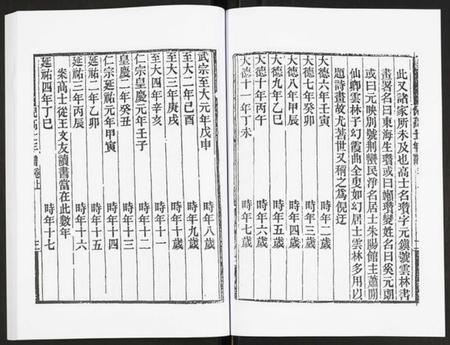 此又諸家所未及也高士名瓚字元鎮號雲林書
畫署名曰東海生瓚或曰嬾瓚變姓名曰奚元朗
或曰元映別號荆蠻民淨名居士朱陽館主蕭閒
仙卿雲林子幻霞曲全叟如幻居士雲林多用以
題詩畫故尤著世又稱之爲倪迂
大德六年壬寅 時年二歲
大德七年癸卯 時年三歲
大德八年甲辰 時年四歲
大德九年乙巳 時年五歲
大德十年丙午 時年六歲
大德十一年丁未 時年七歲
武宗至大元年戊申 時年八歲
至大二年己酉 時年九歲
至大三年庚戌 時年十歲
至大四年辛亥 時年十一
皇慶元年壬子 時年十二
皇慶二年癸丑 時年十三
仁宗延祐元年甲寅 時年十四
延祐二年乙卯 時年十五
延祐三年丙辰 時年十六
案高士從王文友讀書當在此數年
延祐四年丁巳 時年十七